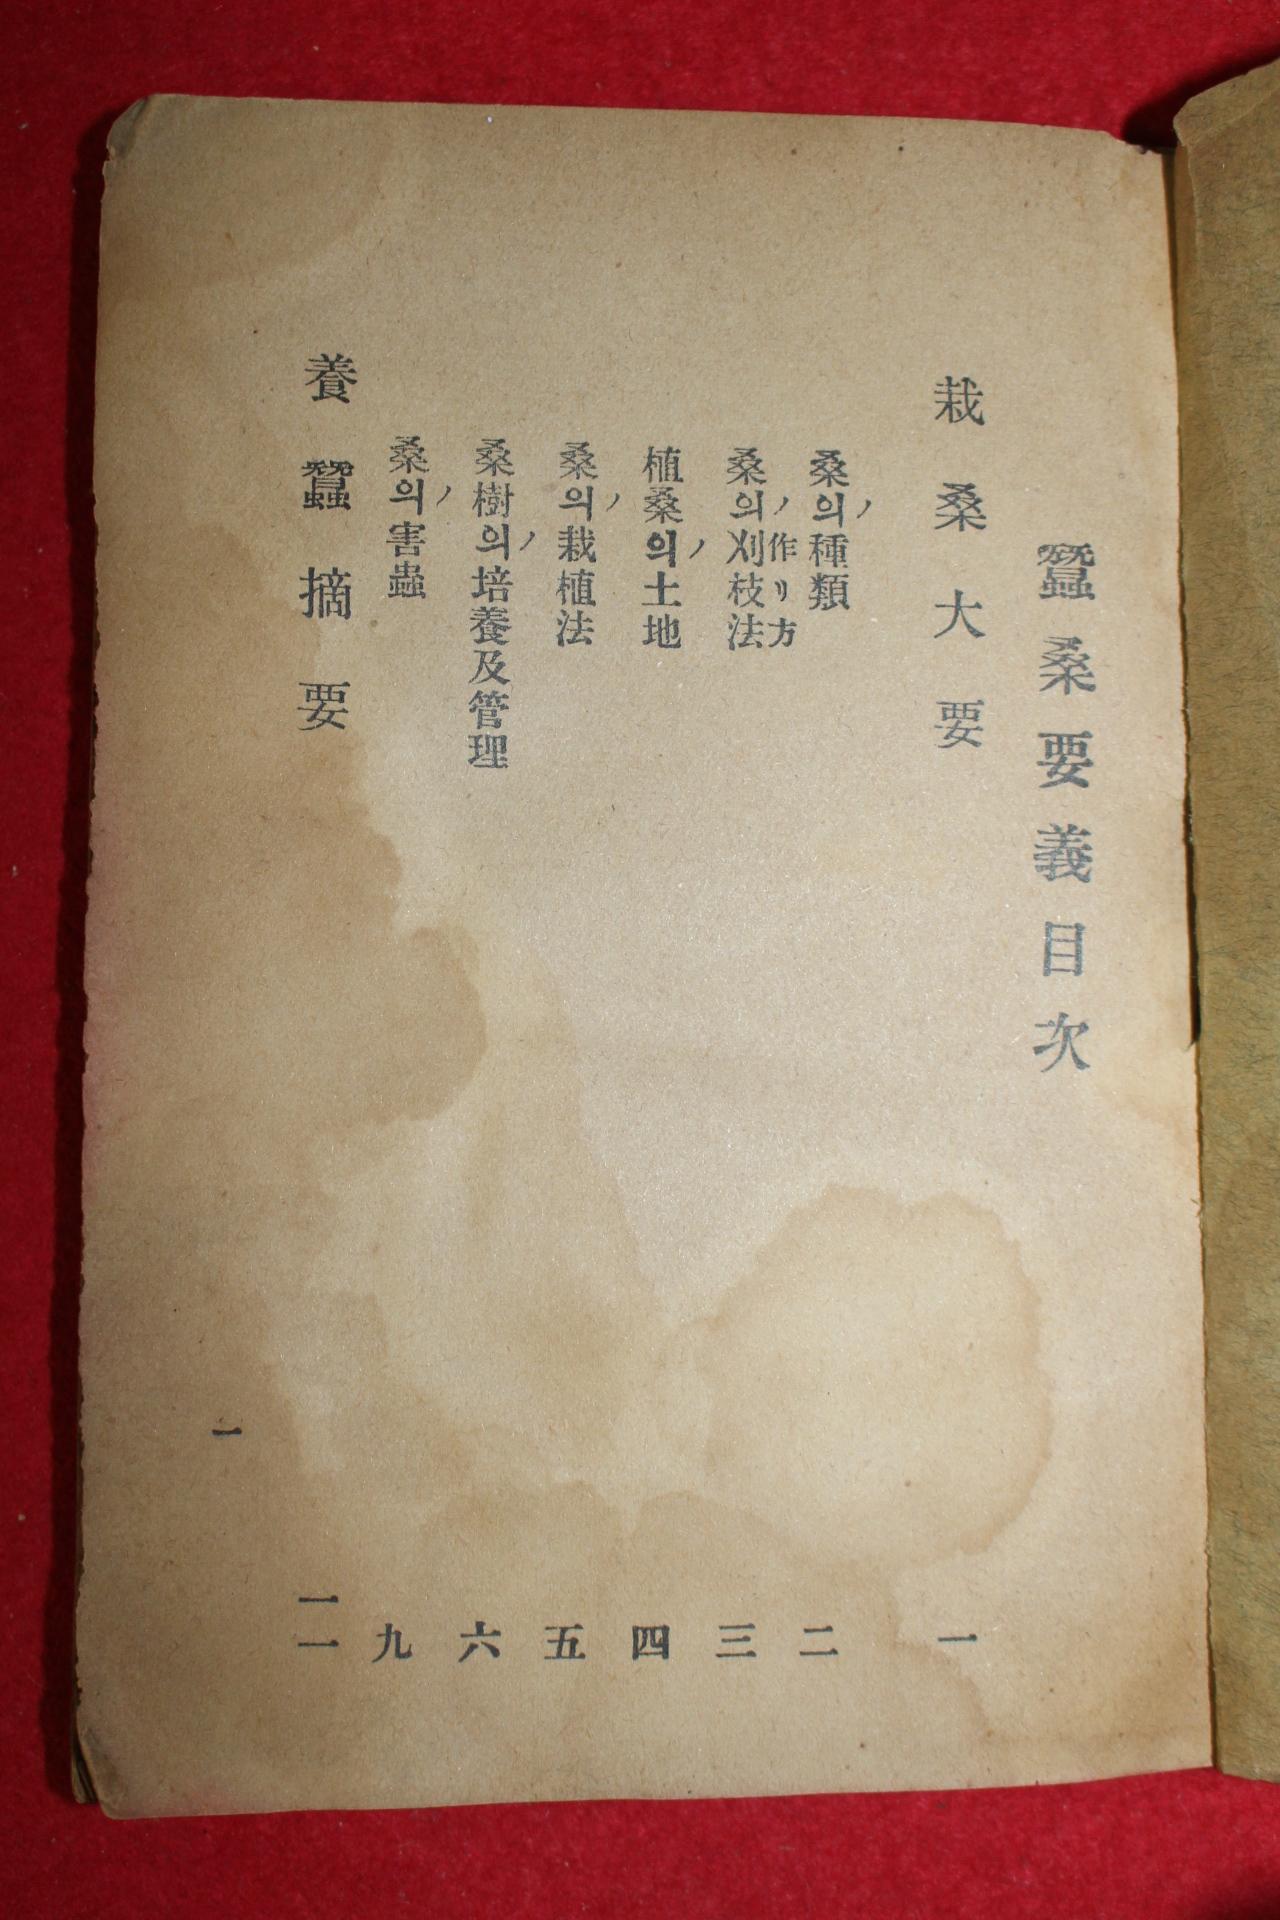 蠶桑要義目次
栽桑大要 一
桑의種類 二
ノ
桑의刈枝法 三
ノ作リ方
植桑의土地 四
ノ
桑의栽植法 五
ノ
桑樹의培養及管理 六
ノ
桑의害蟲 九
ノ
養蠶摘要 一一
一